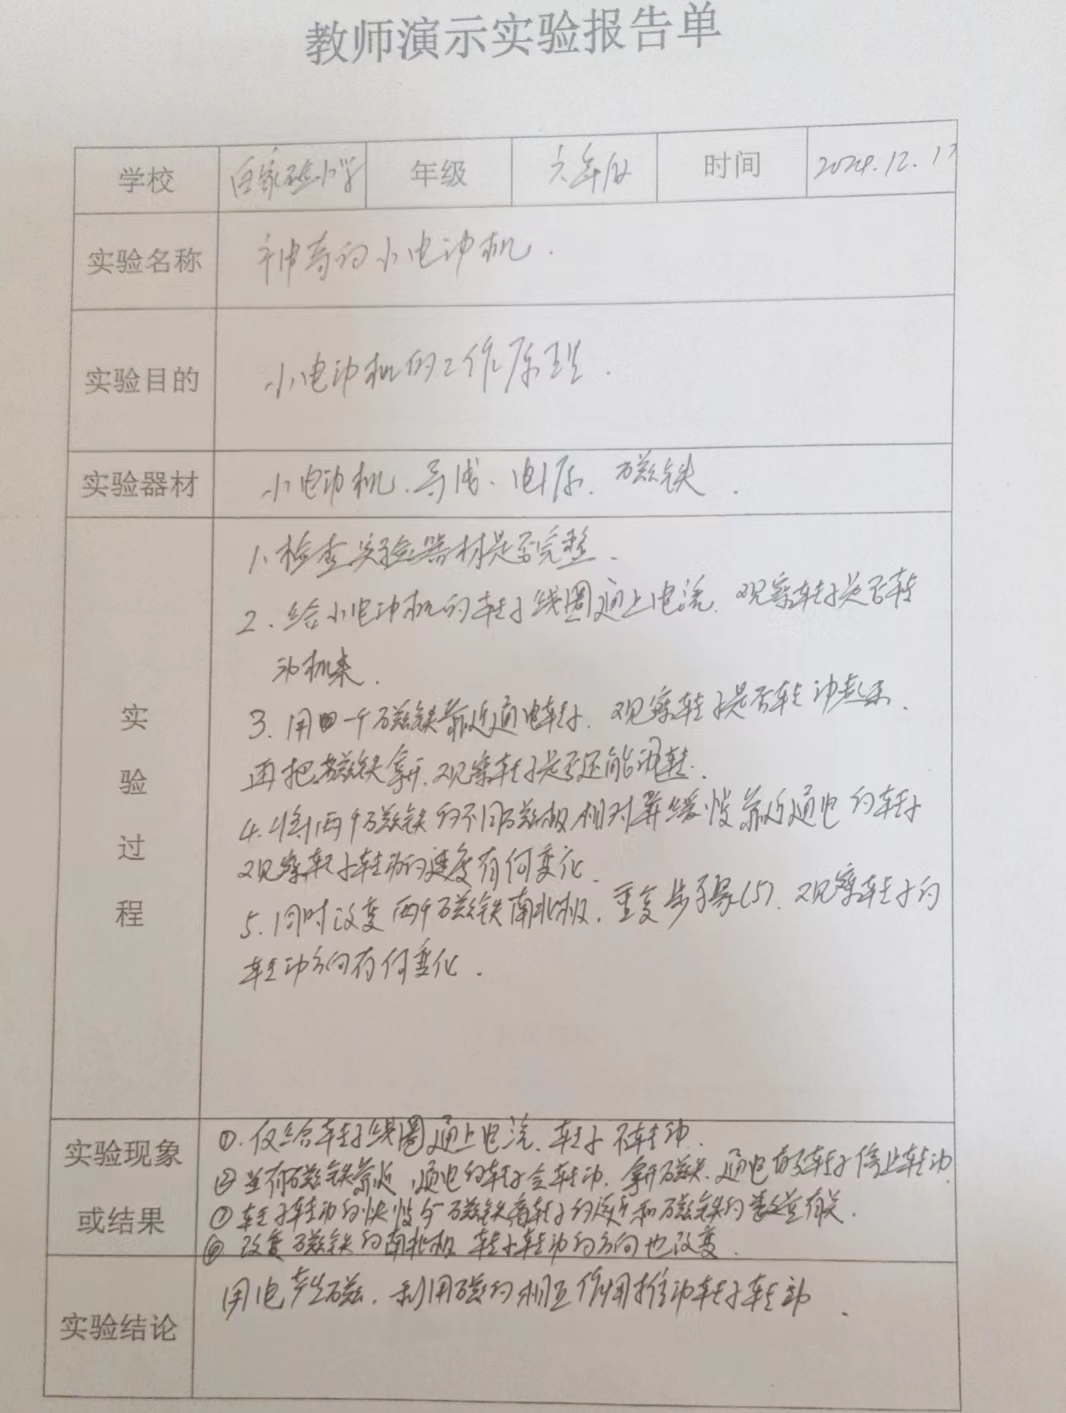 教师演示实验报告单
学校 小学 年级 六年级 时间 2024.12.17
实验名称 神奇的小电动机.
实验目的 小电动机的工作原理.
实验器材 小电动机、导线、电源、磁铁.
实验过程
1、检查实验器材是否完整.
2、给小电动机的转子线圈通上电流、观察转子是否转
动机来.
3、用一个磁铁靠近通电转子、观察转子是否转动起来、
再把磁铁拿开、观察转子是否还能
4、将两个磁铁的不同磁极相对着缓慢靠近通电的转子
观察转子转动的速度有何变化、
5、同时改变两个磁铁南北极、重复步骤(5)、观察转子的
转动方向有何变化.
实验现象或结果
①、仅给转子线圈通上电流、转子不转动.
②当有磁铁靠近、通电的转子会转动、拿开磁铁、通电的转子停止转动
转子转动的快慢与磁铁离转子的远近和磁铁的数量有关.
改变磁铁的南北极 转子转动的方向也改变.
实验结论 用电产生磁、利用磁的相互作用推动转子转动.